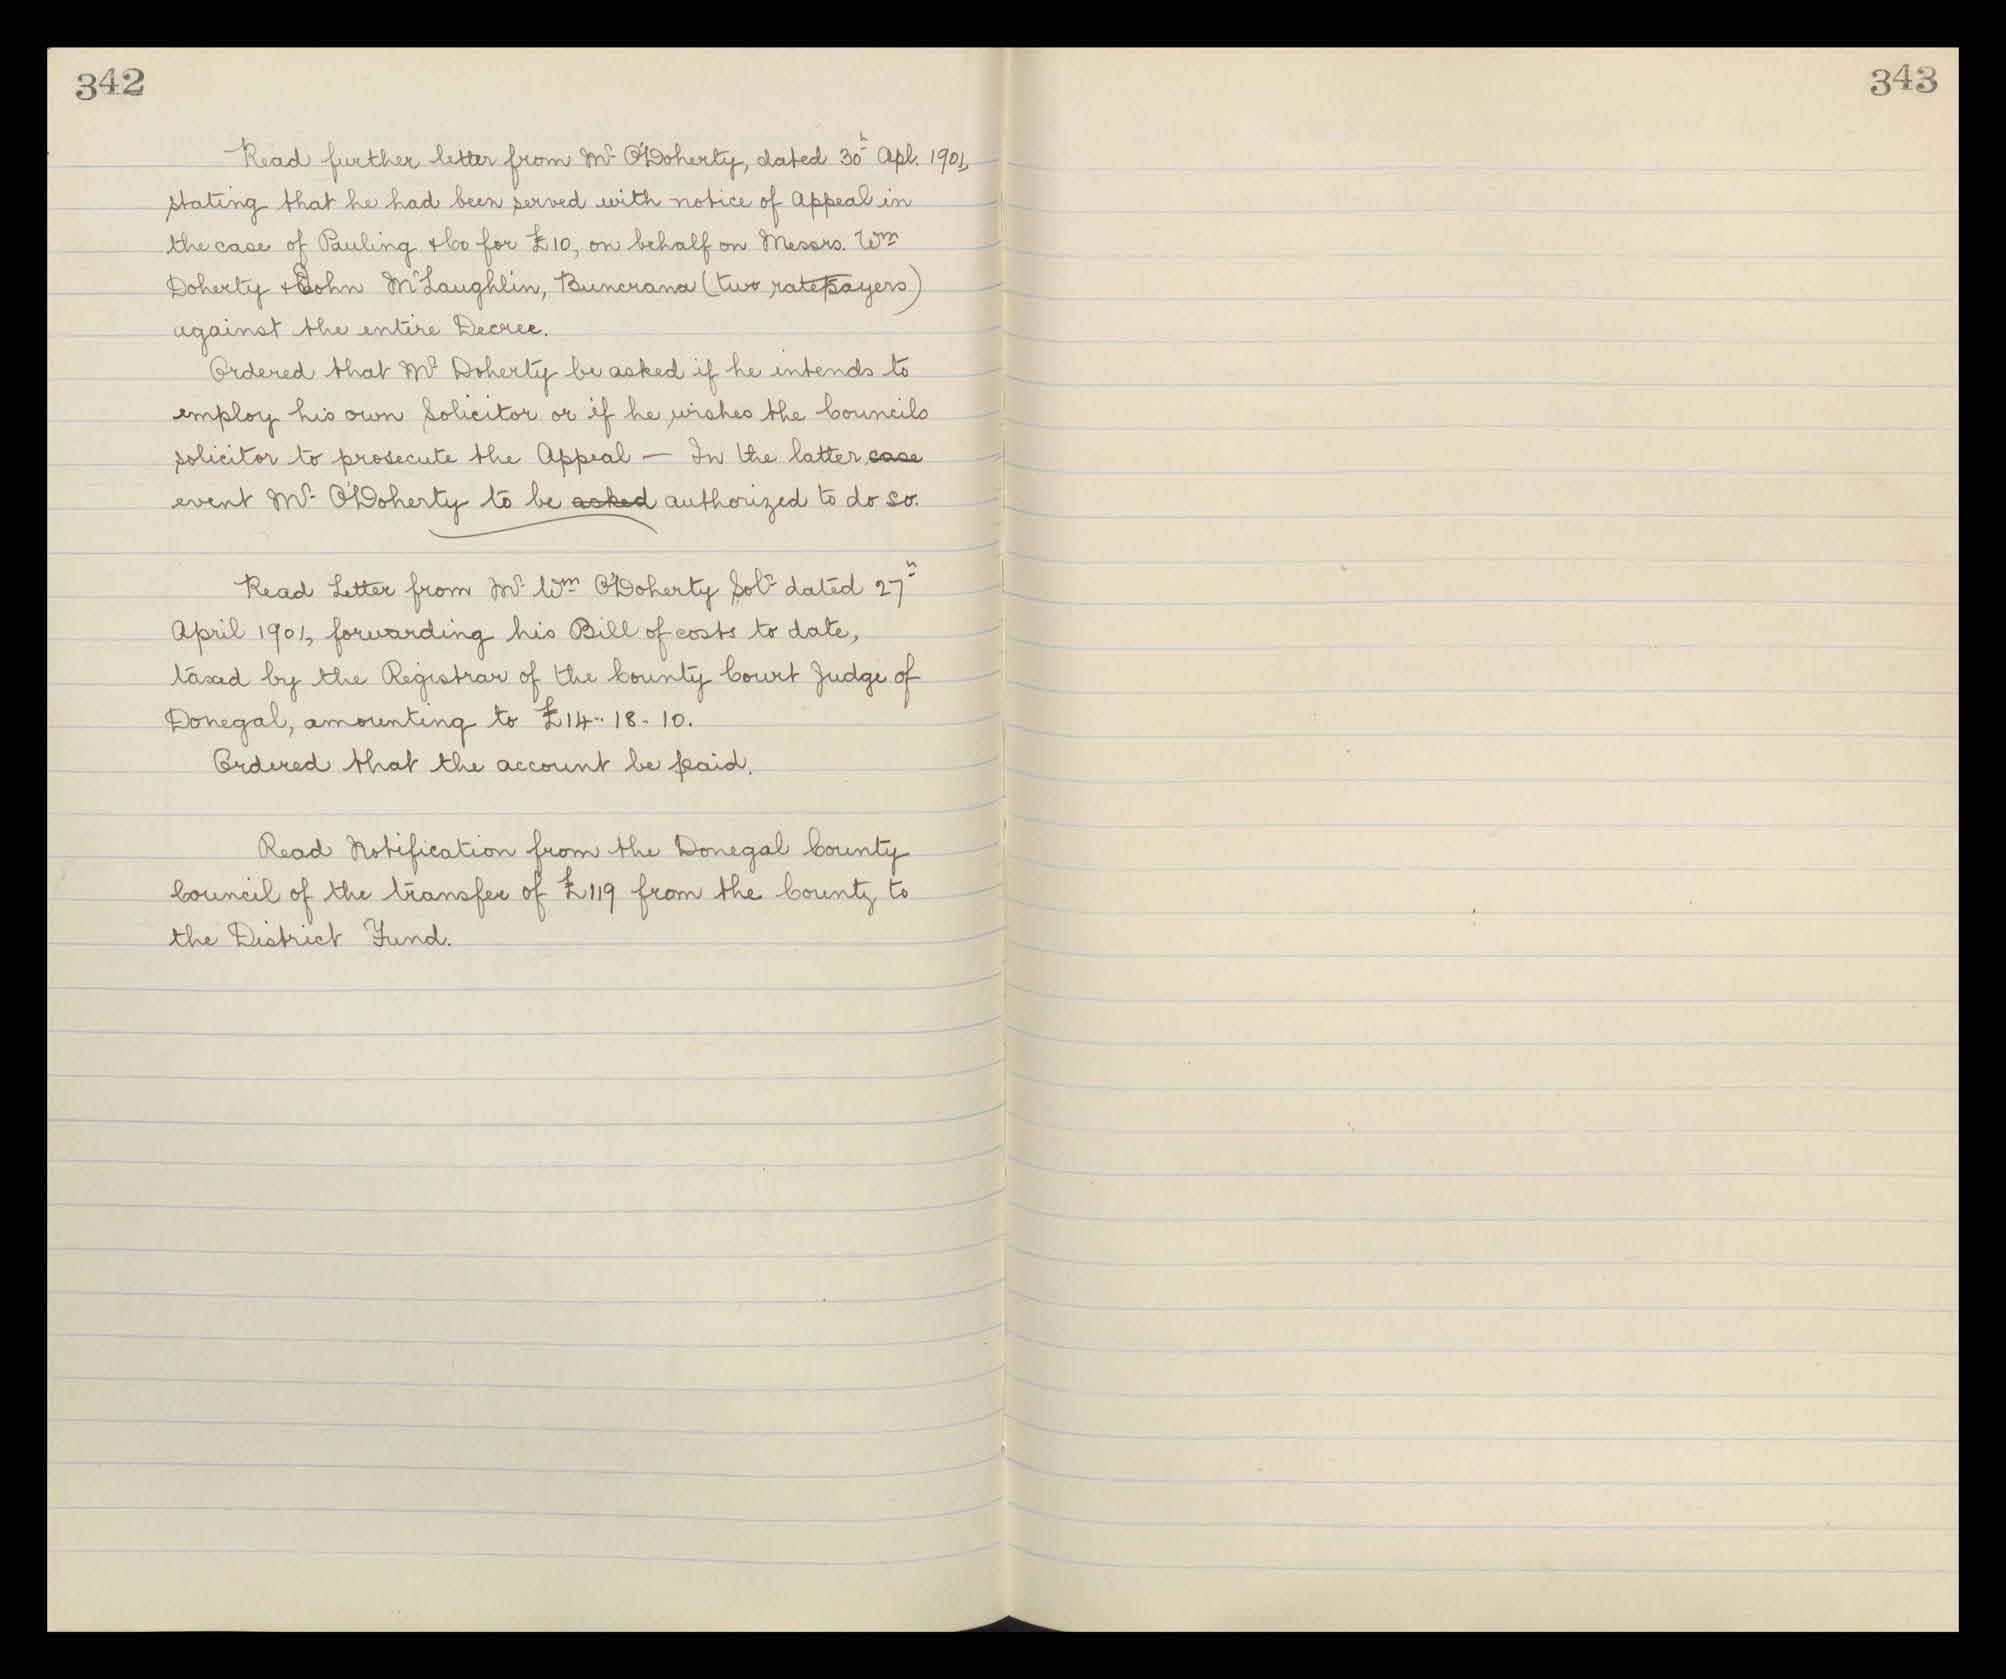 342
Read further letter from Mr O'Doherty, dated 30th Apl. 1901,
stating that he had been served with notice of Appeal in
the case of Pauling & Co for £10, on behalf on Messrs. Wm
Doherty & John McLaughlin, Buncrana (two ratepayers)
against the entire Decree.
Ordered that Mr Doherty be asked if he intends to
employ his own Solicitor or if he wishes the Councils
solicitor to prosecute the Appeal — In the latter case
event Mr O'Doherty to be asked authorized to do so.
Read Letter from Mr Wm O'Doherty Solr dated 27th
April 1901, forwarding his Bill of costs to date,
taxed by the Registrar of the County Court Judge of
Donegal, amounting to £14-18-10.
Ordered that the account be paid.
Read Notification from the Donegal County
Council of the transfer of £119 from the County to
the District Fund.
343